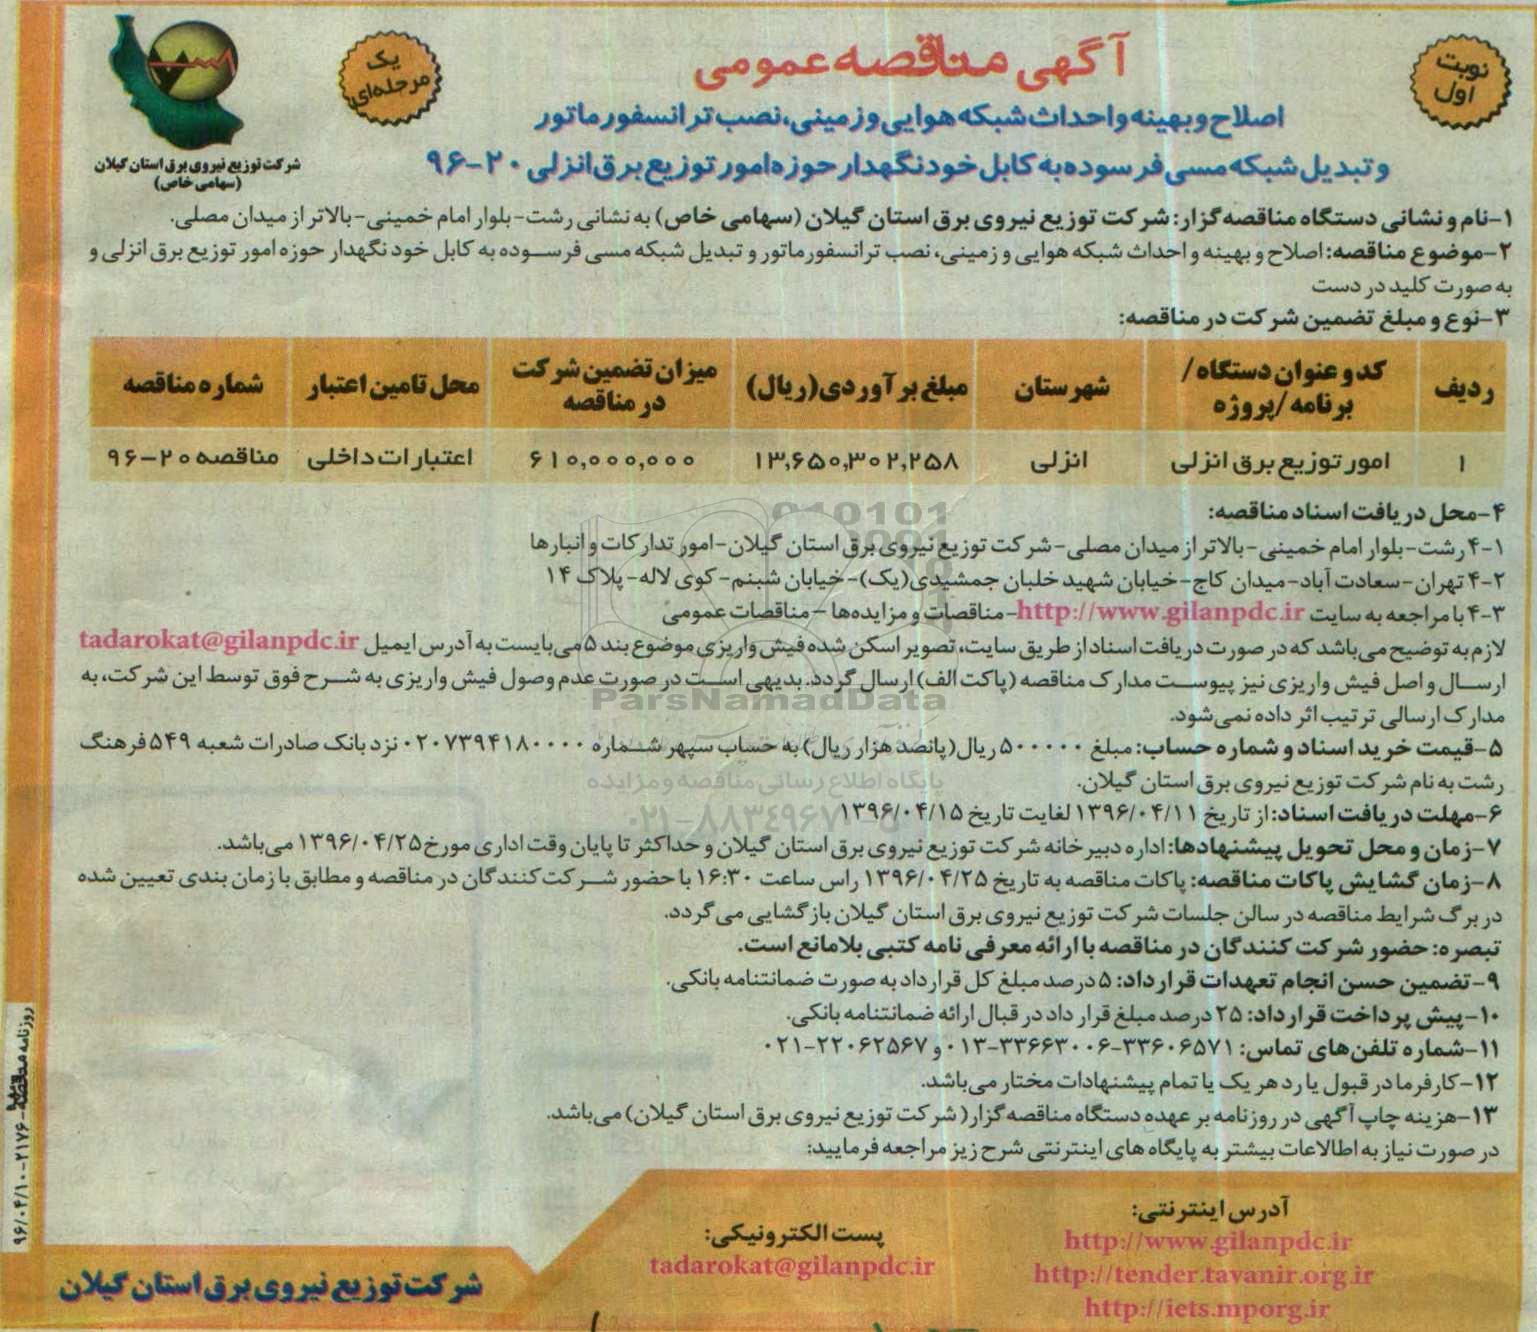 نوبت
اول
آگهی مناقصه عمومی
یک
مرحله‌ای
اصلاح و بهینه و احداث شبکه هوایی و زمینی، نصب ترانسفورماتور
و تبدیل شبکه مسی فرسوده به کابل خودنگهدار حوزه امور توزیع برق انزلی ۲۰-۹۶
شرکت توزیع نیروی برق استان گیلان
(سهامی خاص)
۱-نام و نشانی دستگاه مناقصه گزار: شرکت توزیع نیروی برق استان گیلان (سهامی خاص) به نشانی رشت-بلوار امام خمینی-بالاتر از میدان مصلی.
۲-موضوع مناقصه: اصلاح و بهینه و احداث شبکه هوایی و زمینی، نصب ترانسفورماتور و تبدیل شبکه مسی فرسوده به کابل خودنگهدار حوزه امور توزیع برق انزلی و
به صورت کلید در دست
۳-نوع و مبلغ تضمین شرکت در مناقصه:
ردیف | کد و عنوان دستگاه/ برنامه/پروژه | شهرستان | مبلغ برآوردی(ریال) | میزان تضمین شرکت در مناقصه | محل تامین اعتبار | شماره مناقصه
۱ | امور توزیع برق انزلی | انزلی | ۱۳,۶۵۰,۳۰۲,۲۵۸ | ۶۱۰,۰۰۰,۰۰۰ | اعتبارات داخلی | مناقصه ۲۰-۹۶
۴-محل دریافت اسناد مناقصه:
۴-۱ رشت-بلوار امام خمینی-بالاتر از میدان مصلی-شرکت توزیع نیروی برق استان گیلان-امور تدارکات و انبارها
۴-۲ تهران-سعادت آباد-میدان کاج-خیابان شهید خلبان جمشیدی(یک)-خیابان شبنم-کوی لاله-پلاک ۱۴
۴-۳ با مراجعه به سایت http://www.gilanpdc.ir-مناقصات و مزایده‌ها-مناقصات عمومی
لازم به توضیح می‌باشد که در صورت دریافت اسناد از طریق سایت، تصویر اسکن شده فیش واریزی موضوع بند ۵ می‌بایست به آدرس ایمیل tadarokat@gilanpdc.ir
ارسال و اصل فیش واریزی نیز پیوست مدارک مناقصه (پاکت الف) ارسال گردد. بدیهی است در صورت عدم وصول فیش واریزی به شرح فوق توسط این شرکت، به
مدارک ارسالی ترتیب اثر داده نمی‌شود.
۵-قیمت خرید اسناد و شماره حساب: مبلغ ۵۰۰۰۰۰ ریال(پانصد هزار ریال) به حساب سپهر شماره ۰۲۰۷۳۹۴۱۸۰۰۰۰ نزد بانک صادرات شعبه ۵۴۹ فرهنگ
رشت به نام شرکت توزیع نیروی برق استان گیلان.
۶-مهلت دریافت اسناد: از تاریخ ۱۳۹۶/۰۴/۱۱ لغایت تاریخ ۱۳۹۶/۰۴/۱۵
۷-زمان و محل تحویل پیشنهادها: اداره دبیرخانه شرکت توزیع نیروی برق استان گیلان و حداکثر تا پایان وقت اداری مورخ ۱۳۹۶/۰۴/۲۵ می‌باشد.
۸-زمان گشایش پاکات مناقصه: پاکات مناقصه به تاریخ ۱۳۹۶/۰۴/۲۵ راس ساعت ۱۶:۳۰ با حضور شرکت‌کنندگان در مناقصه و مطابق با زمان بندی تعیین شده
در برگ شرایط مناقصه در سالن جلسات شرکت توزیع نیروی برق استان گیلان بازگشایی می‌گردد.
تبصره: حضور شرکت کنندگان در مناقصه با ارائه معرفی نامه کتبی بلامانع است.
۹-تضمین حسن انجام تعهدات قرارداد: ۵ درصد مبلغ کل قرارداد به صورت ضمانتنامه بانکی.
۱۰-پیش پرداخت قرارداد: ۲۵ درصد مبلغ قرار داد در قبال ارائه ضمانتنامه بانکی.
۱۱-شماره تلفن‌های تماس: ۳۳۶۰۶۵۷۱-۳۳۶۶۳۰۰۶-۰۱۳ و ۲۲۰۶۲۵۶۷-۰۲۱
۱۲-کارفرما در قبول یا رد هر یک یا تمام پیشنهادات مختار می‌باشد.
۱۳-هزینه چاپ آگهی در روزنامه بر عهده دستگاه مناقصه گزار( شرکت توزیع نیروی برق استان گیلان) می‌باشد.
در صورت نیاز به اطلاعات بیشتر به پایگاه های اینترنتی شرح زیر مراجعه فرمایید:
آدرس اینترنتی:
http://www.gilanpdc.ir
http://tender.tavanir.org.ir
http://iets.mporg.ir
پست الکترونیکی:
tadarokat@gilanpdc.ir
شرکت توزیع نیروی برق استان گیلان
روزنامه مناقصه-۲۱۷۶-۹۶/۰۴/۱۰
ParsNamadData
پایگاه اطلاع رسانی مناقصه و مزایده